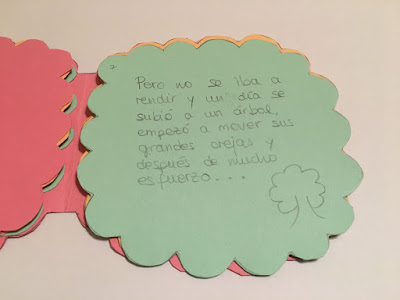 Pero no se iba a
rendir y un día se
subió a un árbol,
empezó a mover sus
grandes orejas y
después de mucho
esfuerzo...